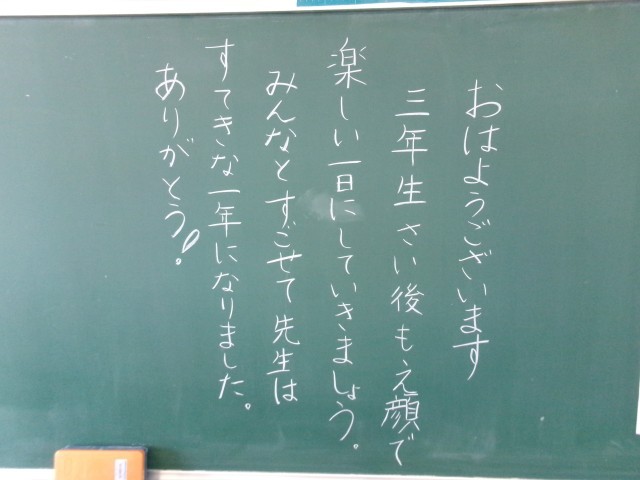 おはようございます
三年生 さい後もえ顔で
楽しい一日にしていきましょう。
みんなとすごせて先生は
すてきな一年になりました。
ありがとう!